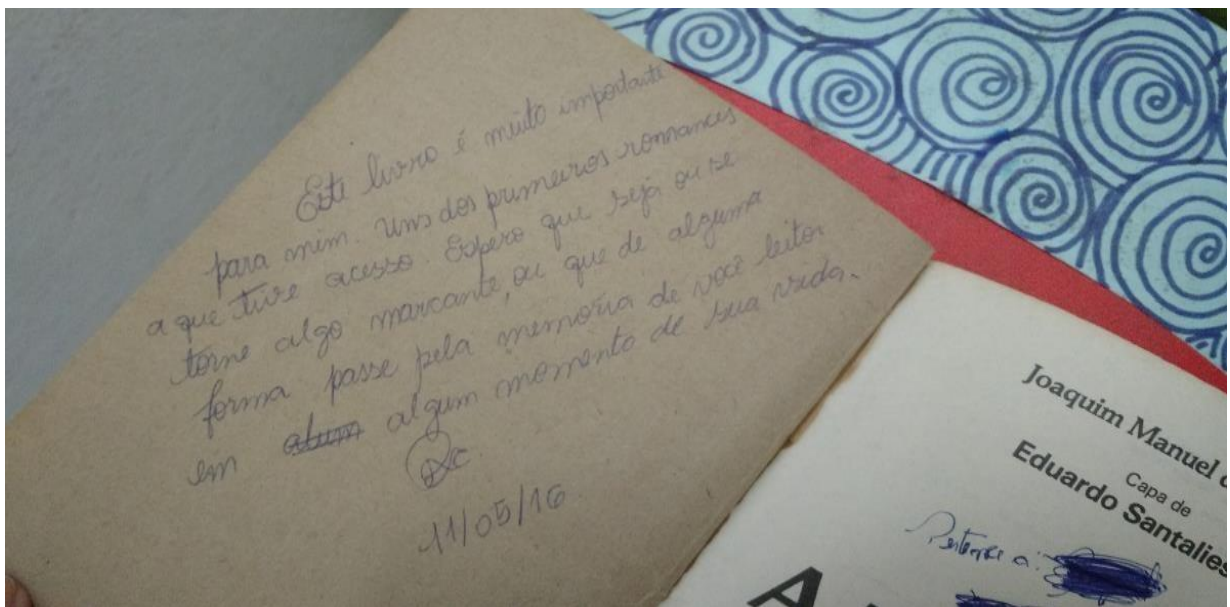 Este livro é muito importante
para mim. Um dos primeiros romances
a que tive acesso. Espero que seja ou se
torne algo marcante, ou que de alguma
forma passe pela memória de você leitor
em algum momento de sua vida.
11/05/16
Joaquim Manuel
Capa de
Eduardo Santalies
Pertence a:
A